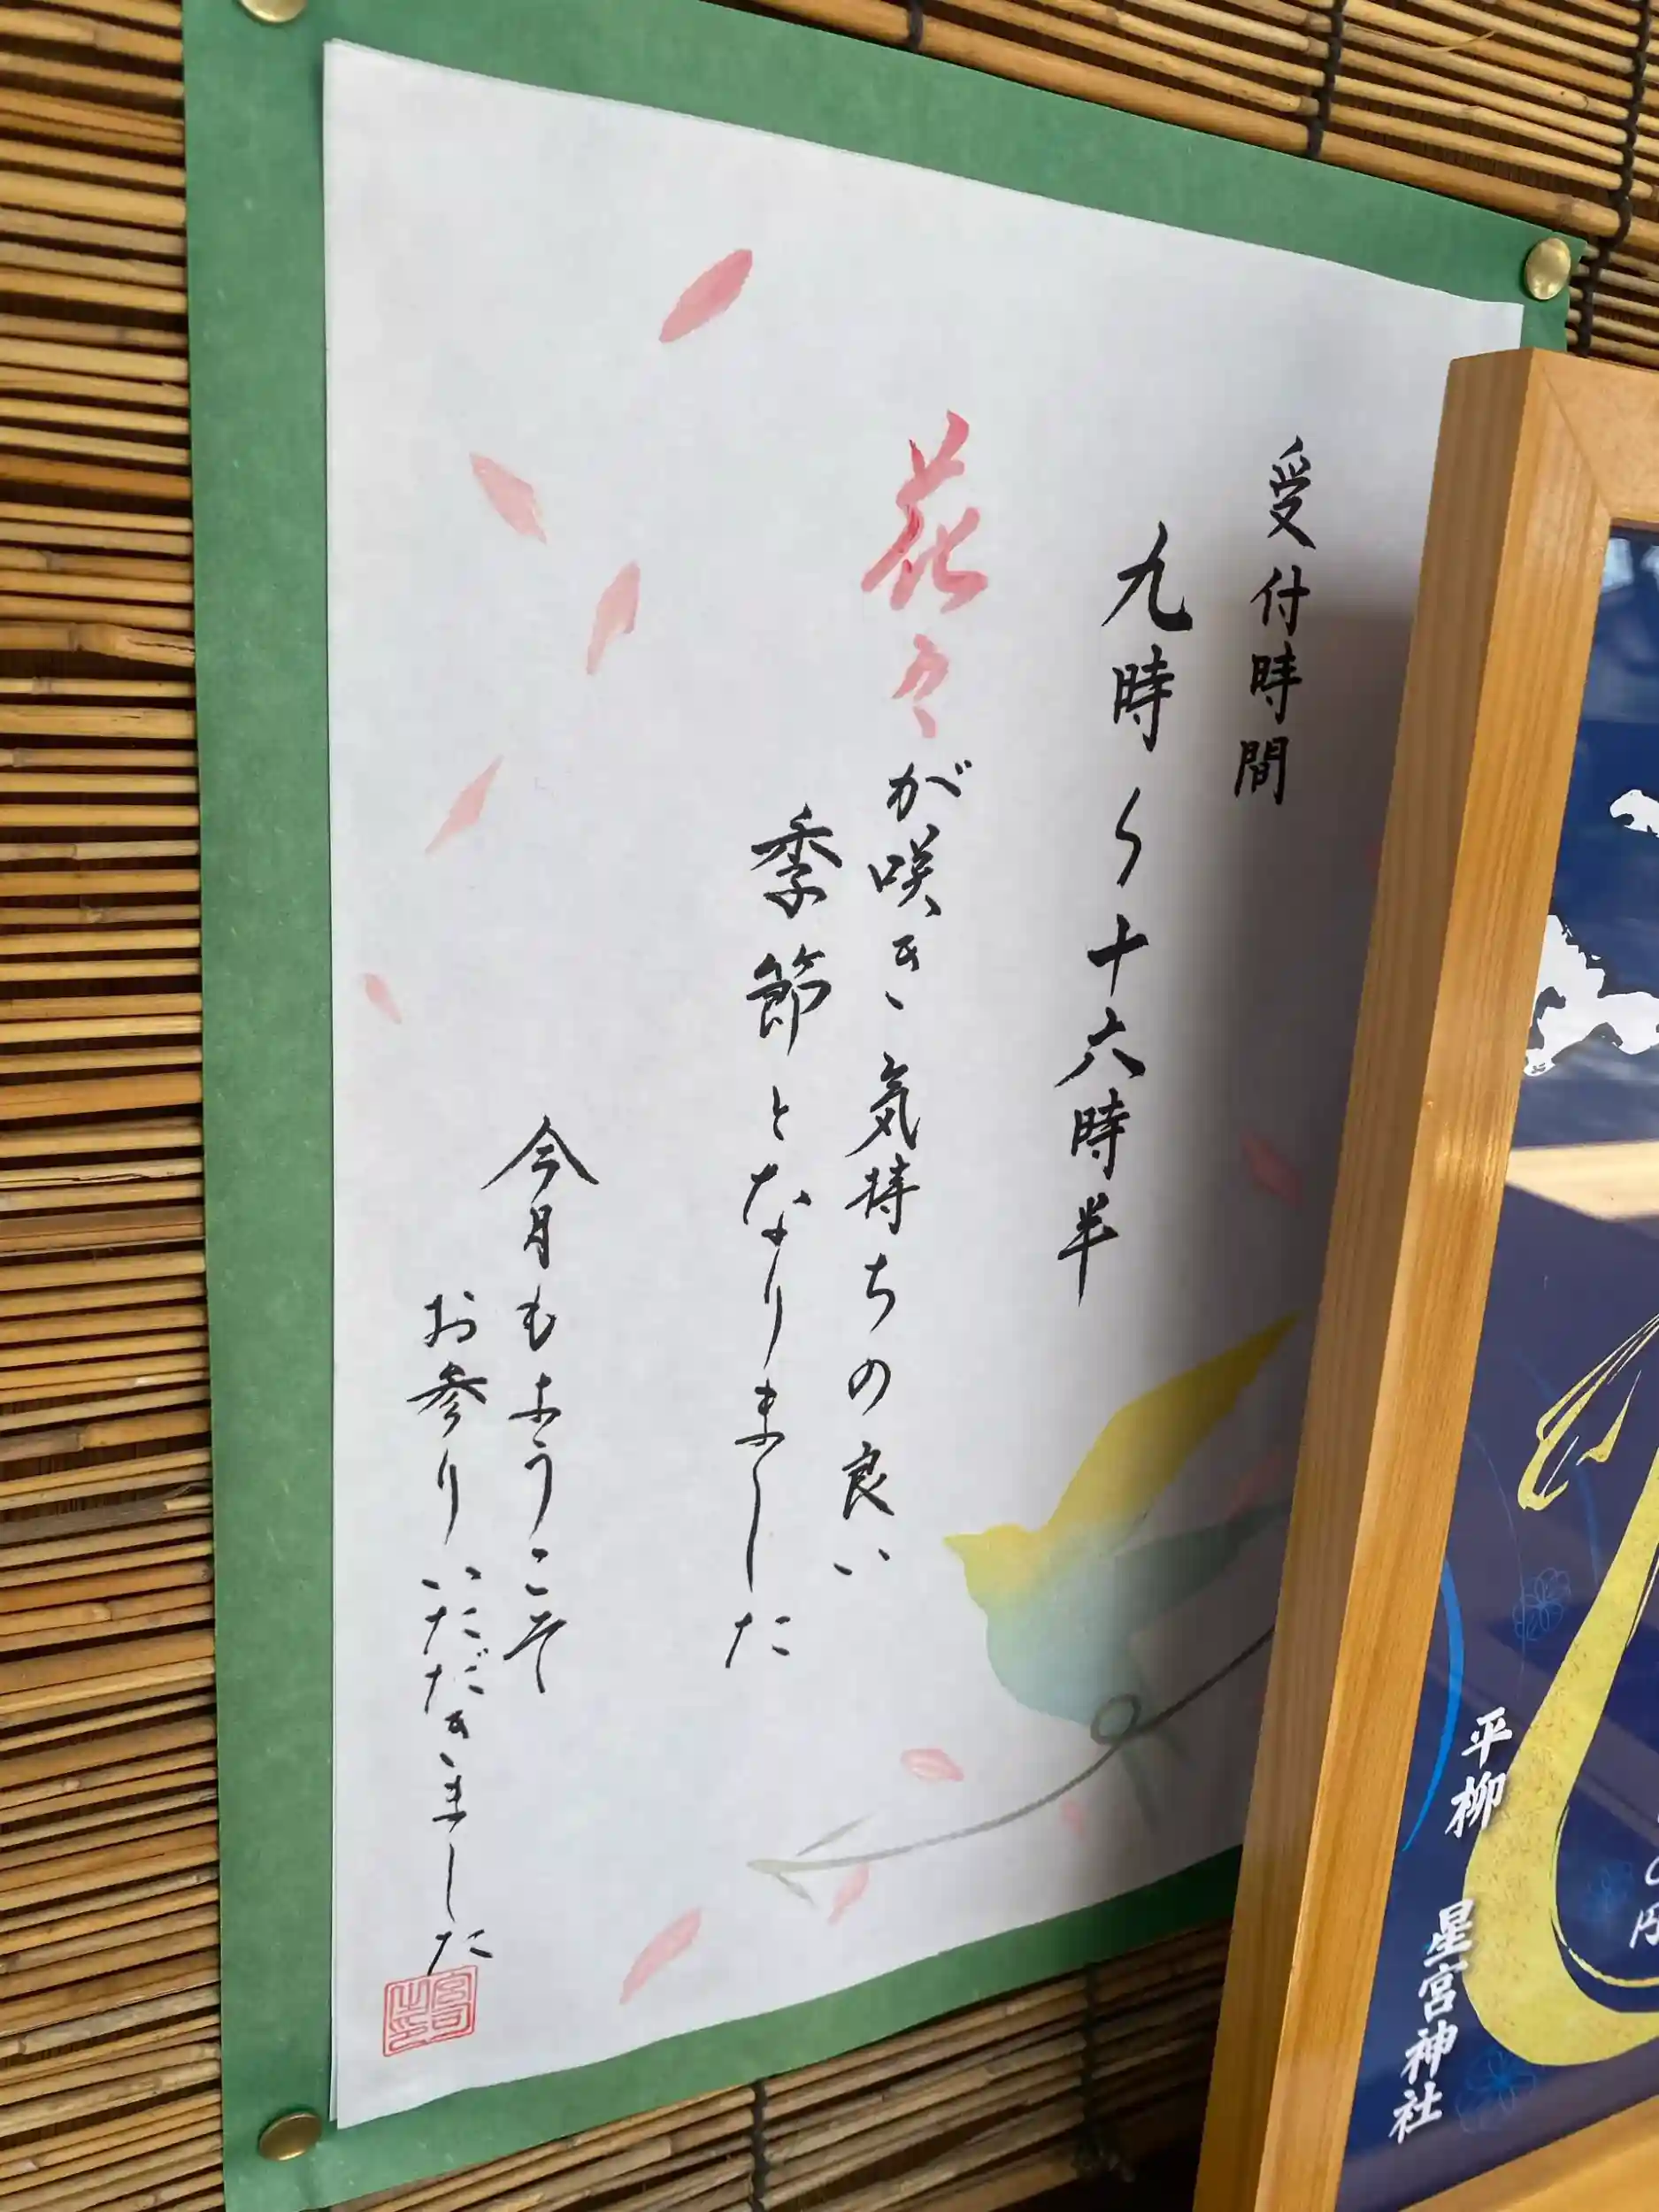 受付時間
九時〜十六時半
花々が咲き、気持ちの良い
季節となりました
今月もようこそ
お参りいただきました
平柳 星宮神社
円